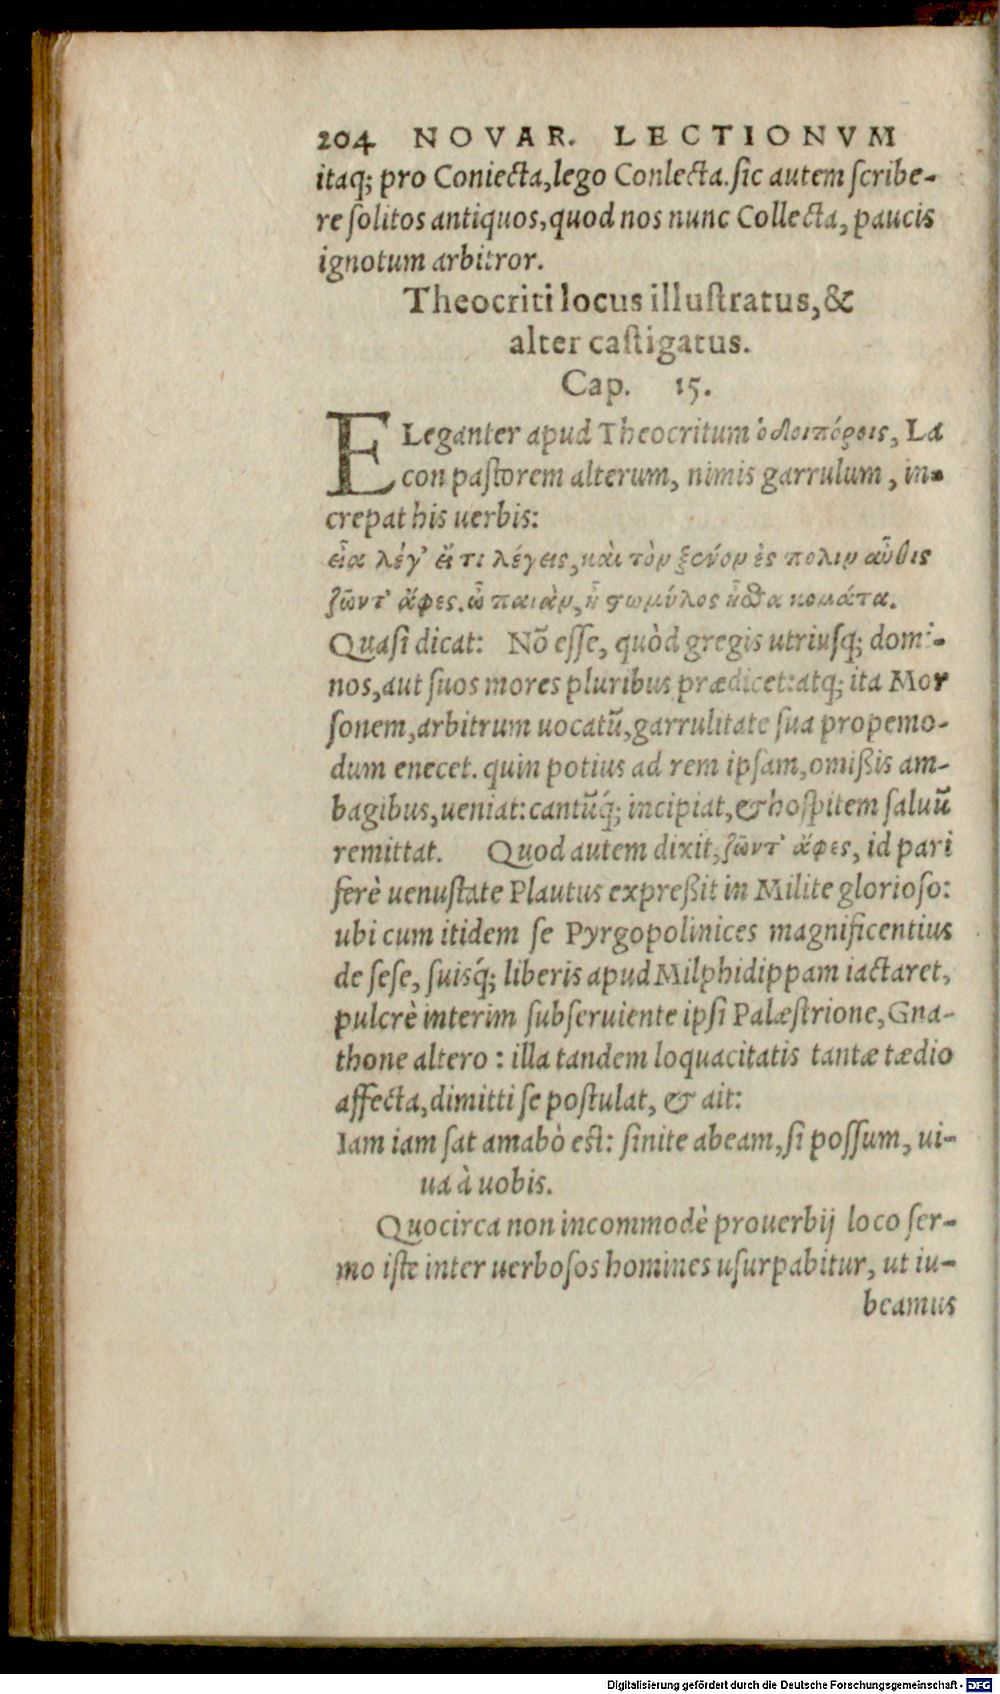 204 NOVAR. LECTIONVM
itaq; pro Coniecta, lego Conlecta. ſic autem ſcribe-
re ſolitos antiquos, quod nos nunc Collecta, paucis
ignotum arbitror.
Theocriti locus illuſtratus, &
alter caſtigatus.
Cap. 15.
ELeganter apud Theocritum ὁδοιπόροις, La
con paſtorem alterum, nimis garrulum, in-
crepat his uerbis:
εἶα λέγ' εἴ τι λέγεις, καὶ τὸν ξένον ἐς πόλιν αὖθις
ζῶντ' ἄφες. ὦ παιὰν, ἦ στωμύλος ἦσθα κομάτα.
Quaſi dicat: Nõ eſſe, quòd gregis utriuſq; domi-
nos, aut ſuos mores pluribus prædicet: atq; ita Mor
ſonem, arbitrum uocatũ, garrulitate ſua propemo-
dum enecet. quin potius ad rem ipſam, omißis am-
bagibus, ueniat: cantũq́; incipiat, & hoſpitem ſaluũ
remittat. Quod autem dixit, ζῶντ' ἄφες, id pari
ferè uenuſtate Plautus expreßit in Milite glorioſo:
ubi cum itidem ſe Pyrgopolinices magnificentius
de ſeſe, ſuisq́; liberis apud Milphidippam iactaret,
pulcrè interim ſubſeruiente ipſi Palæſtrione, Gna-
thone altero: illa tandem loquacitatis tantæ tædio
affecta, dimitti ſe poſtulat, & ait:
Iam iam ſat amabò eſt: ſinite abeam, ſi poſſum, ui-
ua à uobis.
Quocirca non incommodè prouerbij loco ſer-
mo iſte inter uerboſos homines uſurpabitur, ut iu-
beamus
Digitalisierung gefördert durch die Deutsche Forschungsgemeinschaft - DFG